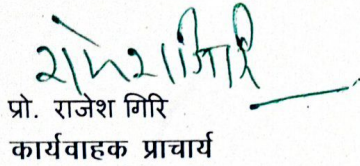 राजेश गिरि
प्रो. राजेश गिरि
कार्यवाहक प्राचार्य